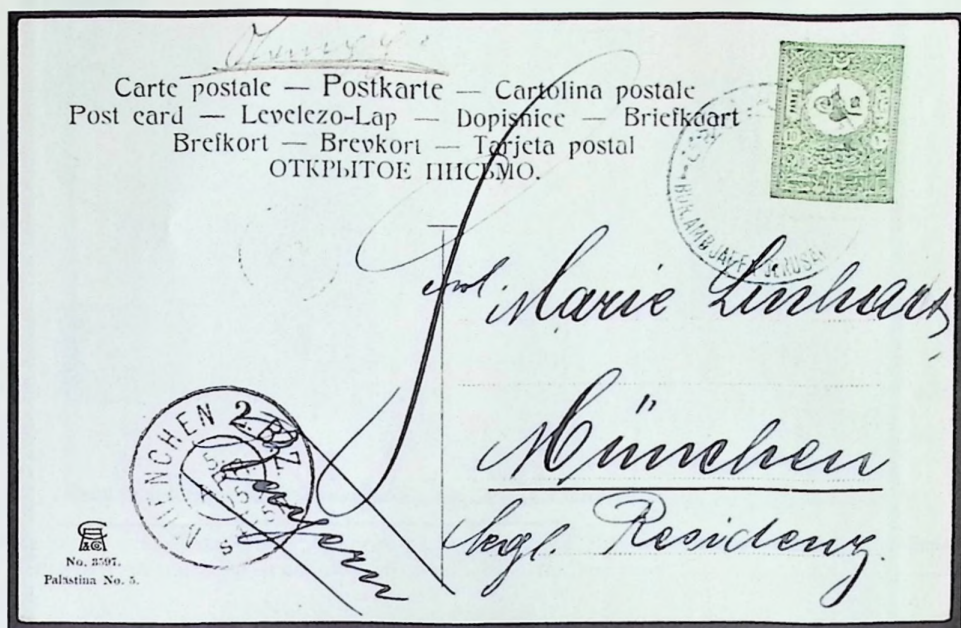 Carte postale — Postkarte — Cartolina postale
Post card — Levelezo-Lap — Dopisnice — Briefkaart
Brefkort — Brevkort — Tarjeta postal
ОТКРЫТОЕ ПИСЬМО.
BUR. AMB JAFFA JERUSA
Marie Linhart
München
kgl. Residenz.
MUENCHEN 2. B.Z.
No. 3597.
Palästina No. 5.